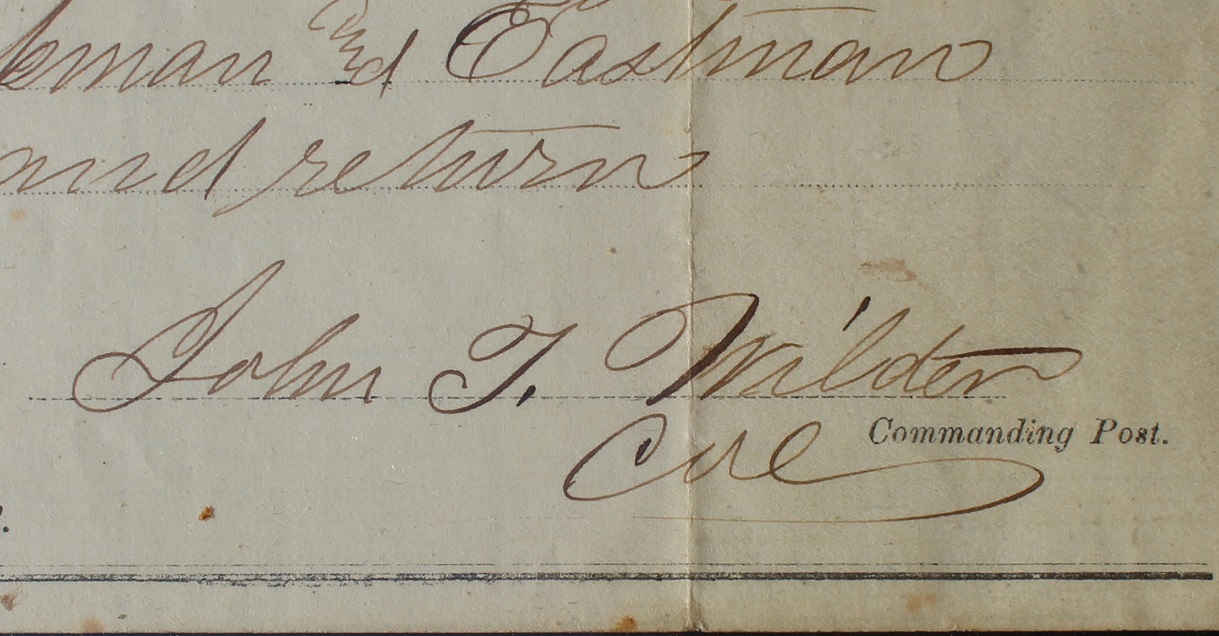 kman Ed Eastman
and return
John T. Wilder
Col
Commanding Post.